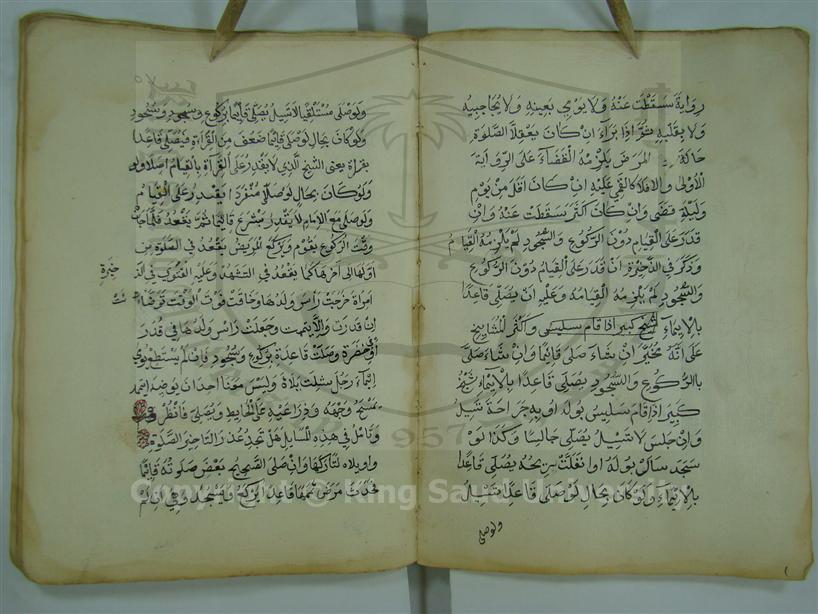 رواية سقطت عنه ولا يومي بعينه ولا بحاجبيه
ولا بقلبه ثم اذا براء ان كان يعقل الصلوة
حالة المرض يلزمه القضاء على الرواية
الاولى والا فلا كالمغمى عليه ان كان اقل من يوم
وليلة قضى وان كان اكثر سقطت عنه وان
قدر على القيام دون الركوع والسجود لم يلزمه القيام
وذكر في الذخيرة ان قدر على القيام دون الركوع
والسجود لم يلزمه القيام وعليه ان يصلى قاعدا
بالايماء شيخ كبير اذا قام سلس واكثر المشايخ
على انه مخير ان شاء صلى قائما وان شاء صلى
بالركوع والسجود يصلى قاعدا بالايماء شيخ
كبير اذا قام سلس بوله او به جراحة تسيل
وان جلس لا تسيل يصلى جالسا وكذا لو
سجد سال بوله او انفلت ريحه يصلى قاعدا
بالايماء ولو كان بحال لو صلى قاعدا تسيل
ولو صلى
ولو صلى مستلقيا لا تسيل يصلى قائما بركوع وسجود
ولو كان بحال لو صلى قائما ضعف من القراءة فيصلى قاعدا
بقراة يعنى الشيخ الذي لا يقدر على القرأة بالقيام اصلا
ولو كان بحال لو صلى منفردا يقدر على القيام
ولو صلى مع الامام لا يقدر يشرع قائما ثم يقعد فاذا جاء
وقت الركوع يقوم ويركع المريض يقعد في الصلوة من
اولها الى اخرها كما يقعد في التشهد وعليه الفتوى
امراة خرجت راس ولدها وخافت فوت الوقت توضات
ان قدرت والا تيممت وجعلت راس ولدها في قدر
او حفرة وصلت قاعدة بركوع وسجود فان لم يستطع تومي
ايماء رجل شلت يداه وليس معه احد ان يوضيه
يمسح وجهه وذراعيه على الحايط ويصلى فانظر
وتأمل في هذه المسايل هل تجد عذرا لتاخير الصلوة
واويلاه لتاركها وان صلى الصحيح بعض صلوته قائما
فحدث مرض تممها قاعدا يركع ويسجد